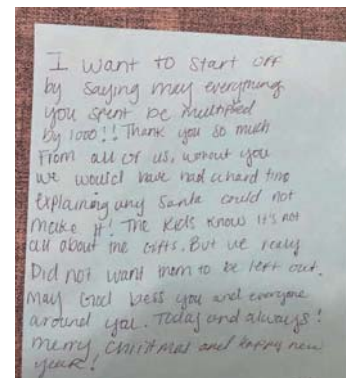 I want to start off
by saying may everything
you spent be multiplied
by 1000!! Thank you so much
From all of us, worout you
we would have had a hard time
Explaining why Santa could not
make it! The Kids know it's not
all about the gifts. But we really
Did not want them to be left out.
May God bless you and everyone
around you. Today and always!
merry Christmas and happy new
year!